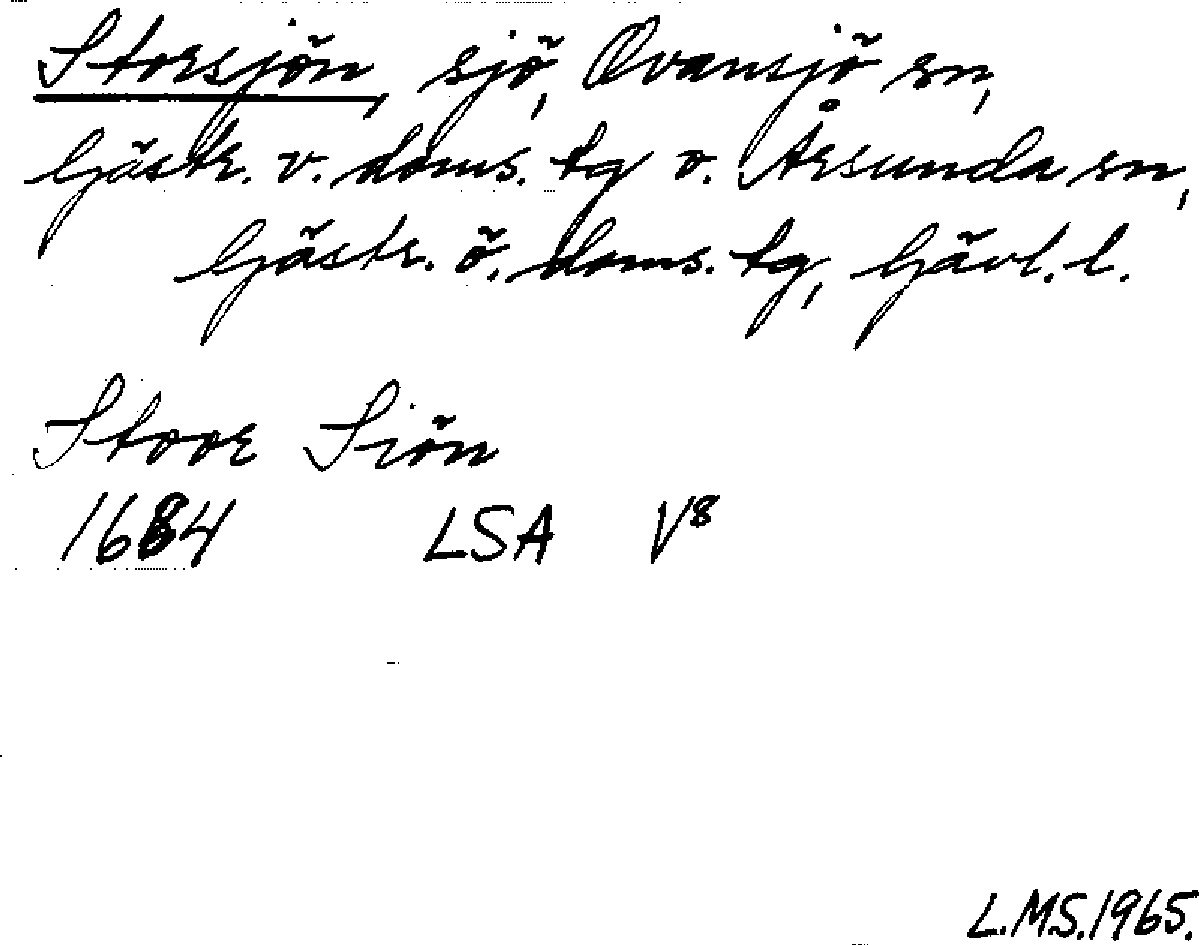 Storsjön, sjö, Ovansjö sn,
Gästr. v. doms. tg o. Årsunda sn,
Gästr. ö. doms. tg, Gävl. l.
Stoor Siön
1684 LSA V8
L.MS.1965.